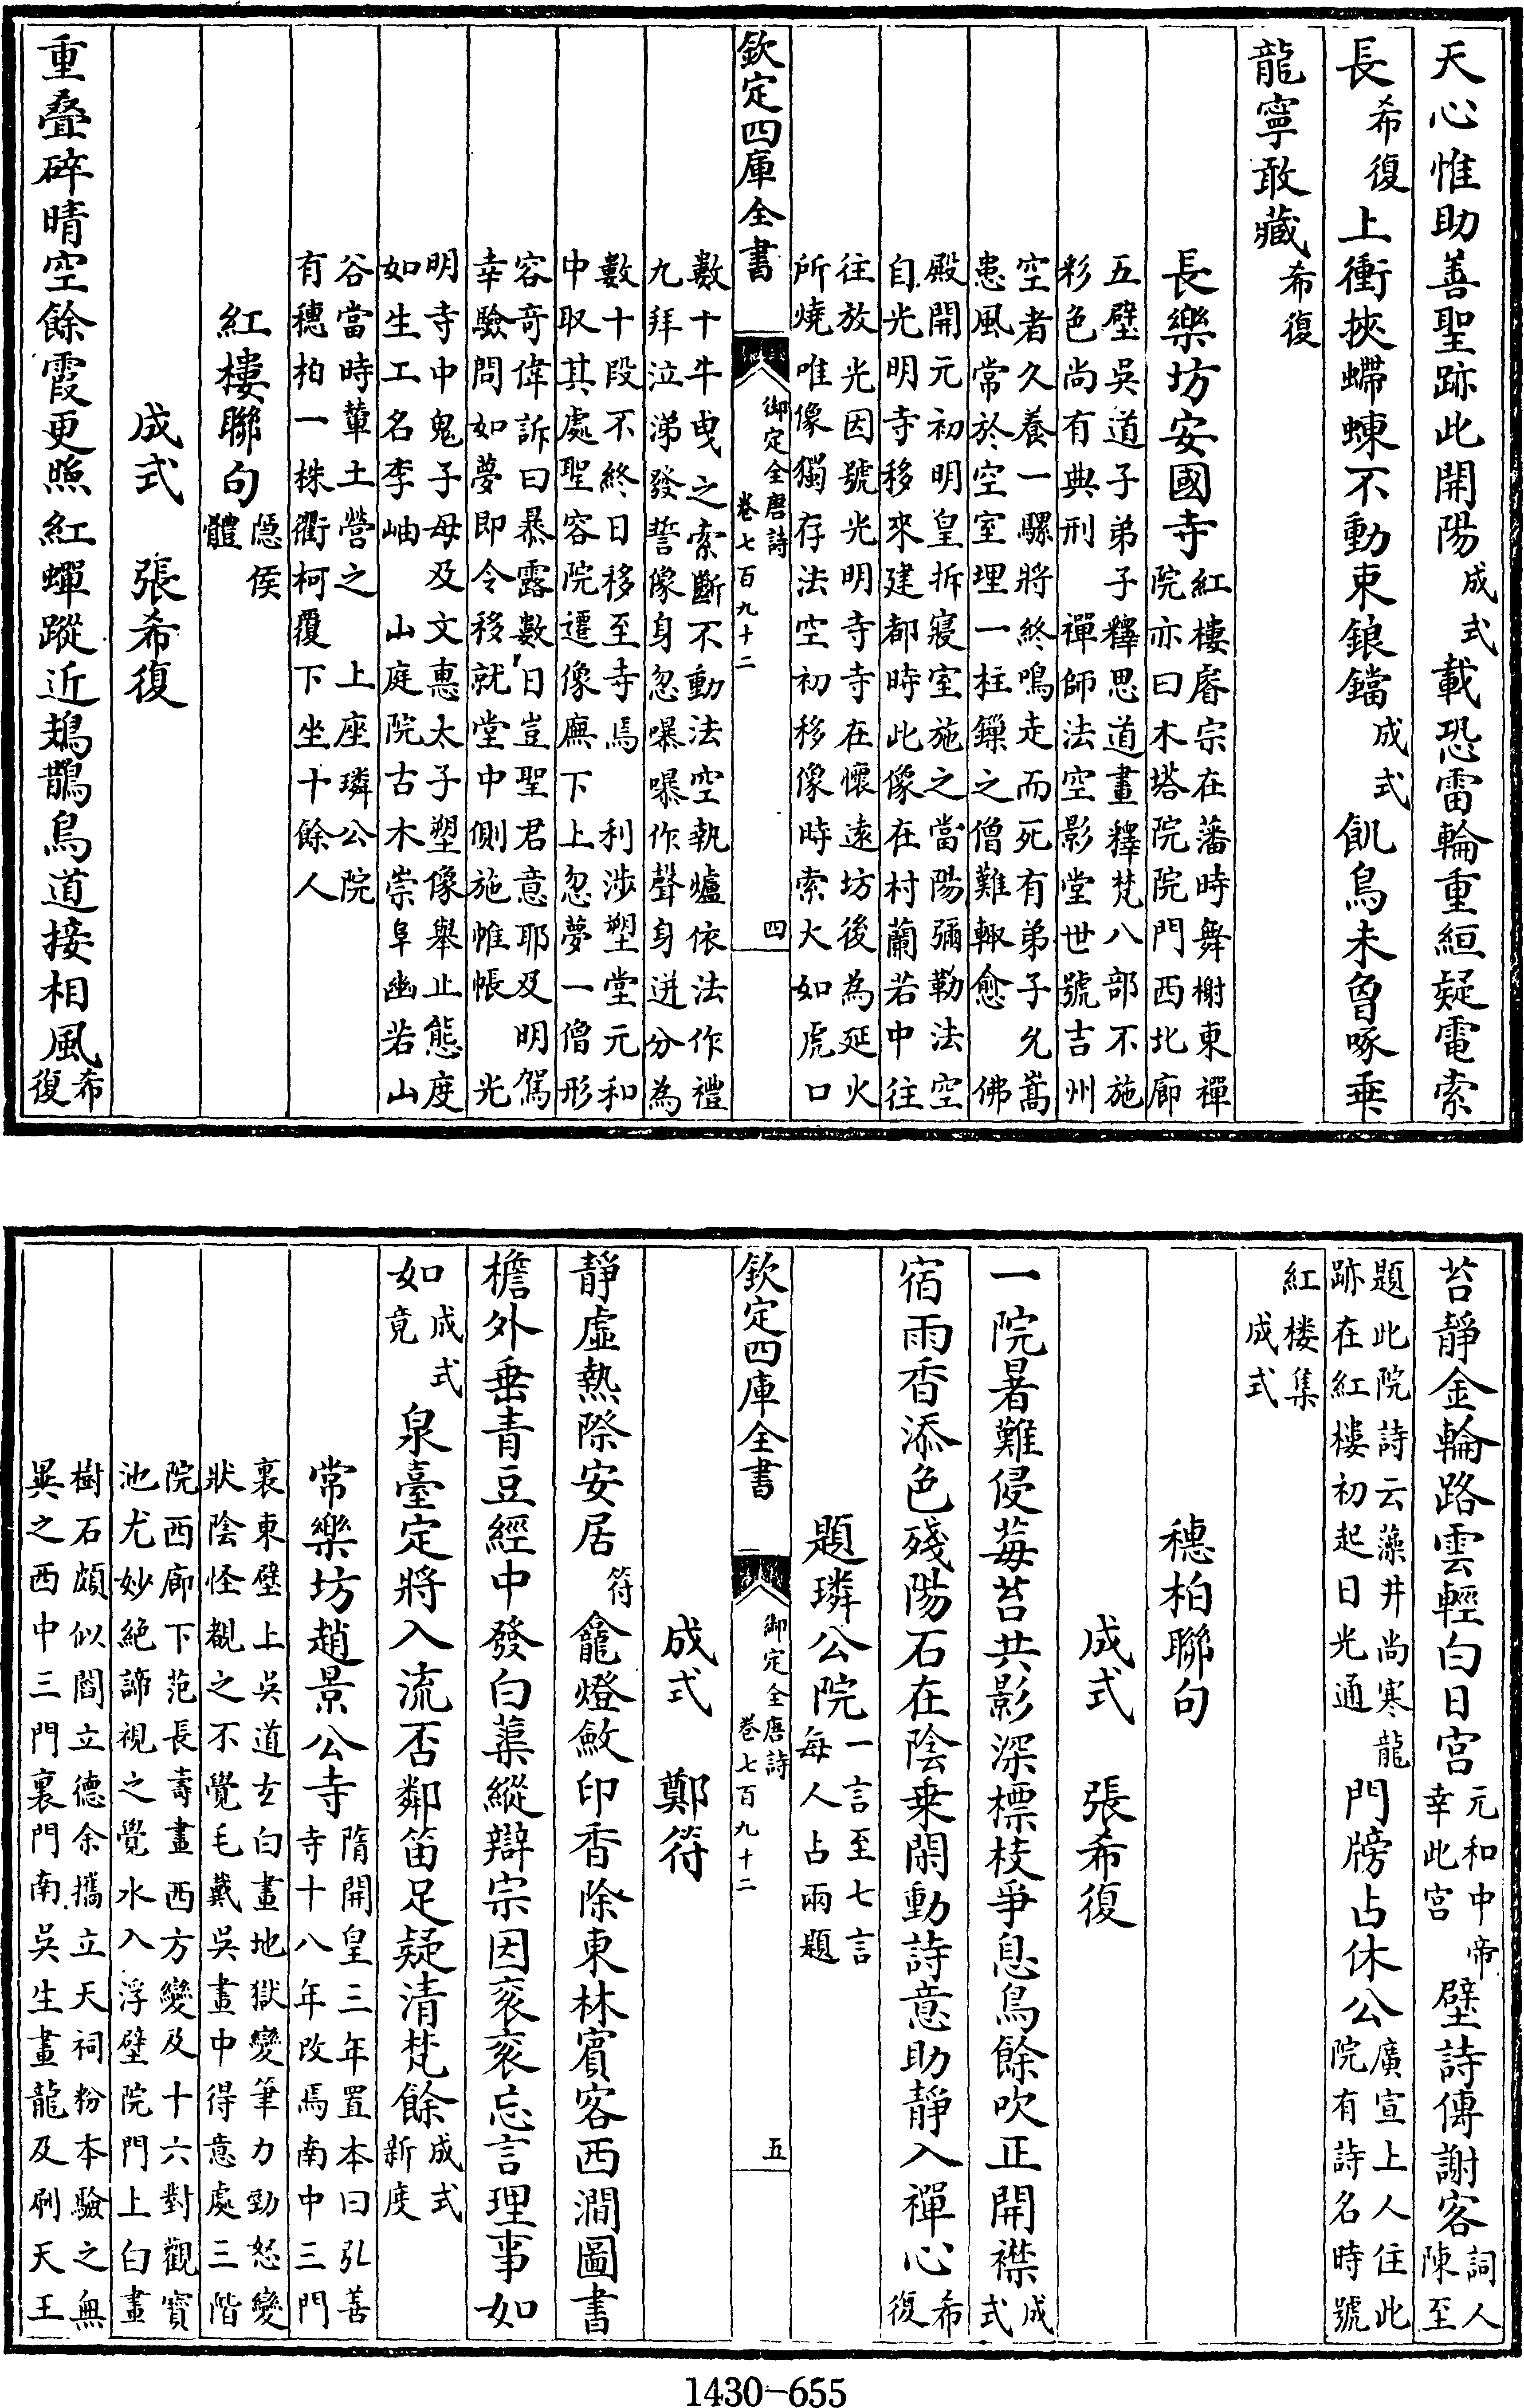 天心惟助善聖跡此開陽成式載恐雷輪重縆疑電索
長希復上衝挾螮蝀不動束鋃鐺成式飢烏未曾啄乖
龍寧敢藏希復
長樂坊安國寺紅樓睿宗在藩時舞榭東禪
院亦曰木塔院院門西北廊
五壁吳道子弟子釋思道畫釋梵八部不施
彩色尚有典刑　禪師法空影堂世號吉州
空者久養一騾將終鳴走而死有弟子允嵩
患風常於空室埋一柱鏁之僧難輙愈　佛
殿開元初明皇拆寢室施之當陽彌勒法空
自光明寺移來建都時此像在村蘭若中往
往放光因號光明寺寺在懷遠坊後為延火
所燒唯像獨存法空初移像時索大如虎口
欽定四庫全書
御定全唐詩
卷七百九十二
四
數十牛曳之索斷不動法空執爐依法作禮
九拜泣涕發誓像身忽嚗嚗作聲身迸分為
數十段不終日移至寺焉　利涉塑堂元和
中取其處聖容院遷像廡下上忽夢一僧形
容奇偉訴曰暴露數日豈聖君意耶及明駕
幸驗問如夢即令移就堂中側施帷帳　光
明寺中鬼子母及文惠太子塑像舉止態度
如生工名李岫　山庭院古木崇阜幽若山
谷當時輦土營之　上座璘公院
有穗柏一株衢柯覆下坐十餘人
紅樓聯句隱侯
體
成式　張希復
重疊碎晴空餘霞更照紅蟬蹤近鳷鵲鳥道接相風希
復
苔靜金輪路雲輕白日宮元和中帝
幸此宮壁詩傳謝客詞人
陳至
題此院詩云藻井尚寒龍
跡在紅樓初起日光通門牓占休公廣宣上人住此
院有詩名時號
紅楼集
成式
穗柏聯句
成式　張希復
一院暑難侵莓苔共影深標枝爭息鳥餘吹正開襟成
式
宿雨香添色殘陽石在陰乗閑動詩意助靜入禪心希
復
題璘公院一言至七言
每人占兩題
欽定四庫全書
御定全唐詩
卷七百九十二
五
成式　鄭符
靜虛熱際安居符龕燈斂印香除東林賓客西澗圖書
檐外垂青豆經中發白蕖縱辯宗因衮衮忘言理事如
如成式
竟泉臺定將入流否鄰笛足疑清梵餘成式
新度
常樂坊趙景公寺隋開皇三年置本曰弘善
寺十八年改焉南中三門
裏東壁上吳道𤣥白畫地獄變筆力勁怒變
狀陰怪覩之不覺毛戴吳畫中得意處三階
院西廊下范長壽畫西方變及十六對觀寶
池尤妙絶諦視之覺水入浮壁院門上白畫
樹石頗似閻立德余攜立天祠粉本驗之無
異之西中三門裏門南吳生畫龍及刷天王
1430-655